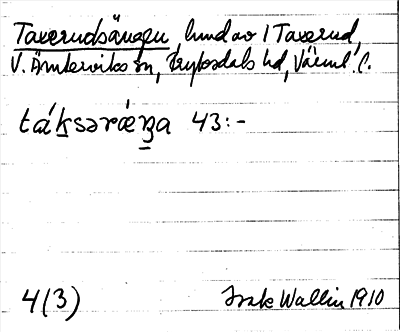 Taxerudsängen, hmd av 1 Taxerud,
V. Ämterviks sn, Fryksdals hd, Värml. l.
táksəræ̀ŋa 43:-
4(3) Isak Wallin 1910